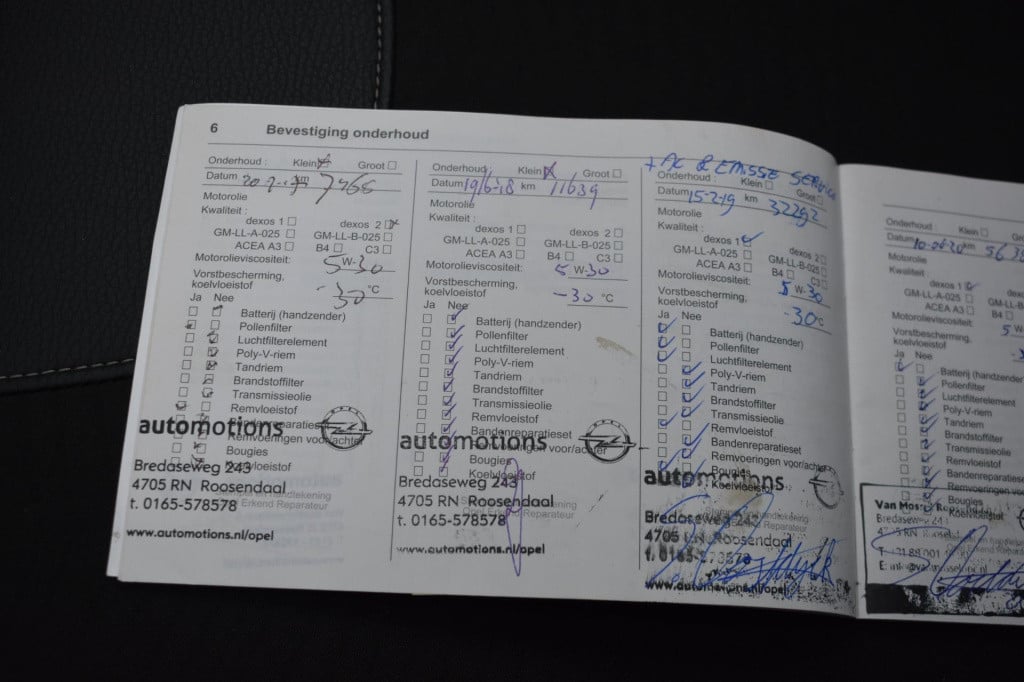 6 Bevestiging onderhoud
Onderhoud : Klein Groot
Datum km 7468
Motorolie
Kwaliteit :
dexos 1 dexos 2
GM-LL-A-025 GM-LL-B-025
ACEA A3 B4 C3
Motorolieviscositeit: 5 W-30
Vorstbescherming,
koelvloeistof -30 °C
Ja Nee
Batterij (handzender)
Pollenfilter
Luchtfilterelement
Poly-V-riem
Tandriem
Brandstoffilter
Transmissieolie
Remvloeistof
Bandenreparatieset
Remvoeringen voor/achter
Bougies
Koelvloeistof
automotions
Bredaseweg 243
4705 RN Roosendaal
t. 0165-578578
Erkend Reparateur
www.automotions.nl/opel
Onderhoud : Klein Groot
Datum 19/6-18 km 11639
Motorolie
Kwaliteit :
dexos 1 dexos 2
GM-LL-A-025 GM-LL-B-025
ACEA A3 B4 C3
Motorolieviscositeit: 5 W-30
Vorstbescherming,
koelvloeistof -30 °C
Ja Nee
Batterij (handzender)
Pollenfilter
Luchtfilterelement
Poly-V-riem
Tandriem
Brandstoffilter
Transmissieolie
Remvloeistof
Bandenreparatieset
Remvoeringen voor/achter
Bougies
Koelvloeistof
automotions
Bredaseweg 243
4705 RN Roosendaal
t. 0165-578578
Reparateur
www.automotions.nl/opel
+ AC & EMISSE SERVICE
Onderhoud : Klein Groot
Datum 15-2-19 km 32292
Motorolie
Kwaliteit :
dexos 1 dexos 2
GM-LL-A-025 GM-LL-B-025
ACEA A3 B4 C3
Motorolieviscositeit: 5 W-30
Vorstbescherming,
koelvloeistof -30°C
Ja Nee
Batterij (handzender)
Pollenfilter
Luchtfilterelement
Poly-V-riem
Tandriem
Brandstoffilter
Transmissieolie
Remvloeistof
Bandenreparatieset
Remvoeringen voor/achter
Bougies
Koelvloeistof
automotions
Bredaseweg 243
4705 RN Roosendaal
t. 0165-578578
www.automotions.nl/opel
Onderhoud : Klein
Datum km
Motorolie
Kwaliteit
dexos 1
GM-LL-A-025 GM-LL
ACEA A3 B4
Motorolieviscositeit: 5
Vorstbescherming,
koelvloeistof
Ja Nee
Batterij (handzender)
Pollenfilter
Luchtfilterelement
Poly-V-riem
Tandriem
Brandstoffilter
Transmissieolie
Remvloeistof
Bandenreparatieset
Remvoeringen
Bougies
Koelvloeistof
Bredaseweg